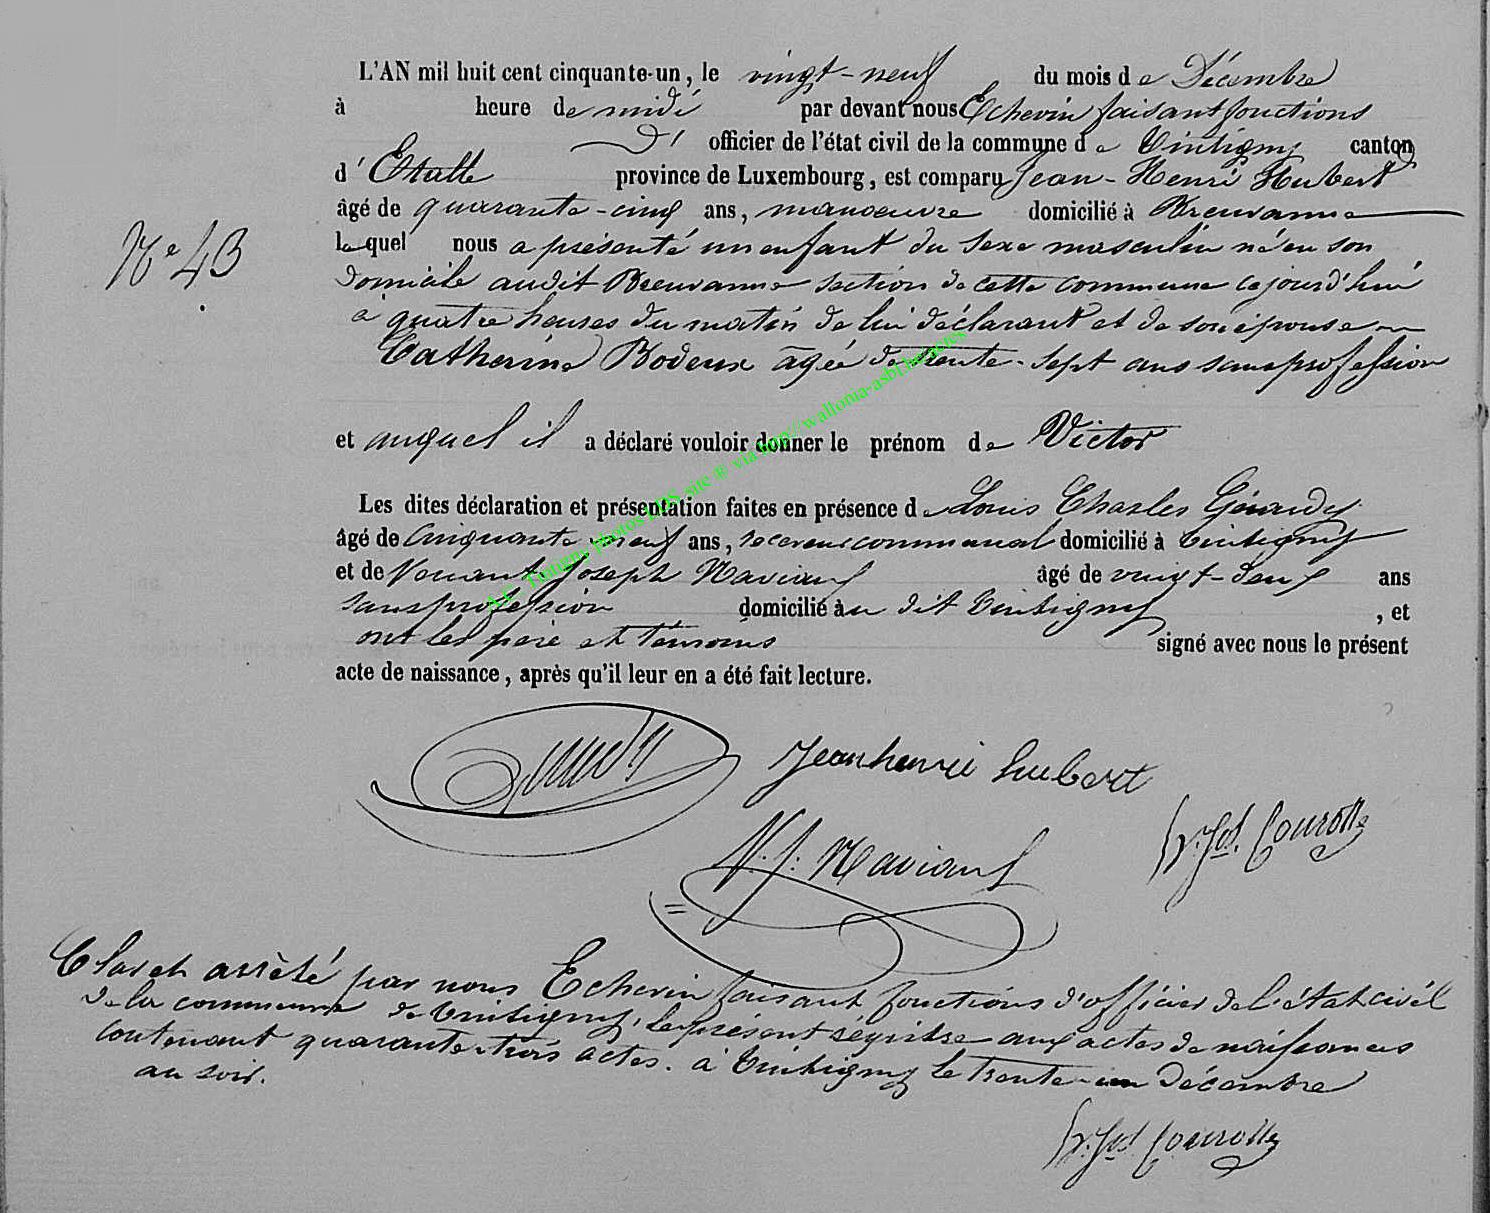 L'AN mil huit cent cinquante-un, le vingt-neuf du mois de Décembre
à heure de midi par devant nous Echevin faisant fonctions
d' officier de l'état civil de la commune de Tintigny canton
d'Etalle province de Luxembourg, est comparu Jean-Henri Hubert
âgé de quarante-cinq ans, manoeuvre domicilié à Breuvanne
lequel nous a présenté un enfant du sexe masculin né en son
domicile audit Breuvanne section de cette commune cejourd'hui
à quatre heures du matin de lui déclarant et de son épouse
Catherine Bodeux âgée de trente-sept ans sans profession
N° 43
et auquel il a déclaré vouloir donner le prénom de Victor
Les dites déclaration et présentation faites en présence de Louis Charles Gérardy
âgé de cinquante neuf ans, receveur communal domicilié à Tintigny
et de Joseph âgé de vingt-deux ans
sans profession domicilié au dit Tintigny, et
ont les père et témoins signé avec nous le présent
acte de naissance, après qu'il leur en a été fait lecture.
Jeanhenri hubert
Clos et arrêté par nous Echevin faisant fonctions d'officier de l'état civil
de la commune de Tintigny, le présent régistre aux actes de naissances
contenant quarante-trois actes. à Tintigny le trente-un Décembre
au soir.
A.C. Tintigny photos LDS site ® via http://wallonia-asbl.be/actes